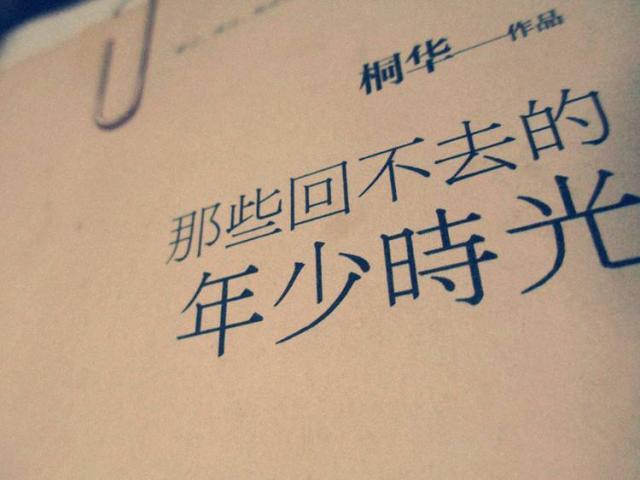 桐华——作品
那些回不去的
年少時光